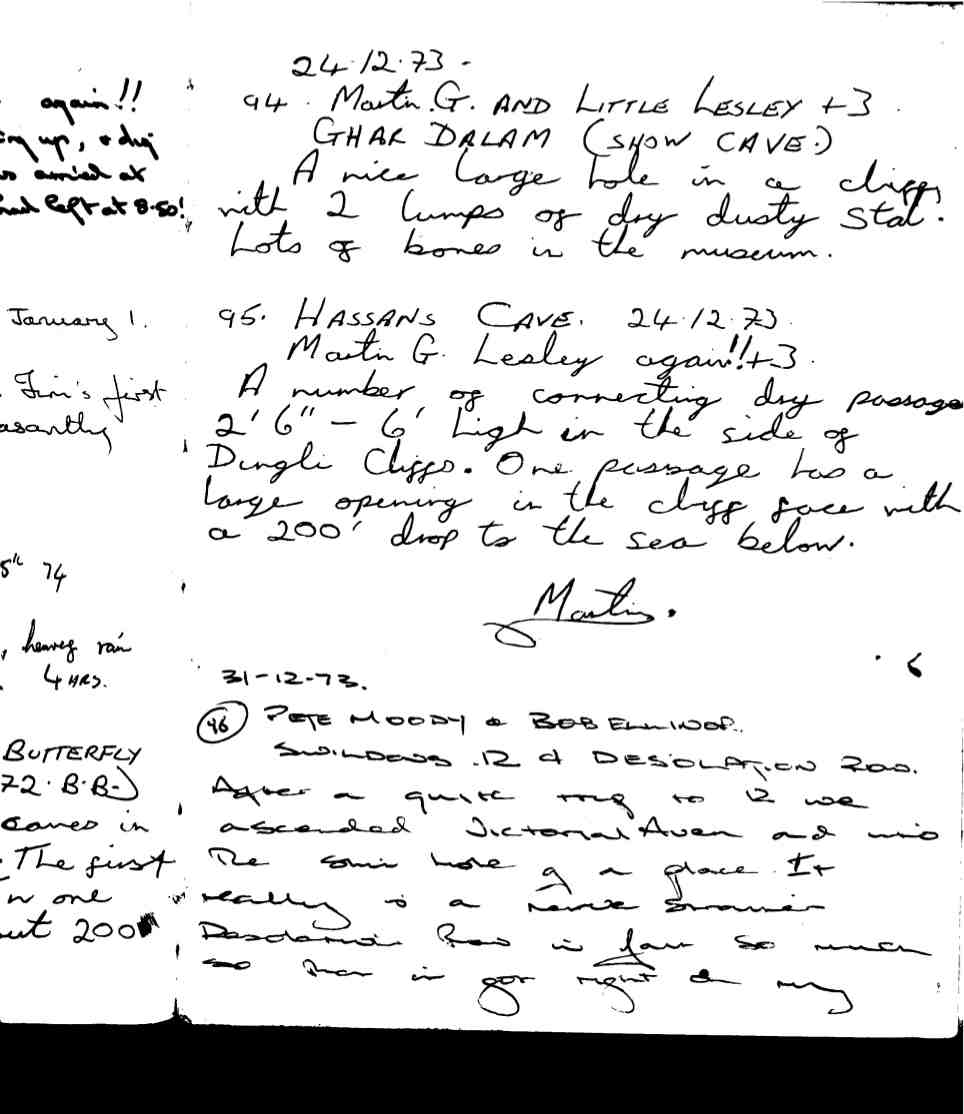 again!!
up, & dig
arrived at
had left at 8.50!
January 1.
Jim's first
5th 74
, heavy rain
4 HRS.
BUTTERFLY
72. B.B.)
caves in
The first
one
200
24.12.73.
94. Martin.G. AND LITTLE LESLEY +3.
GHAR DALAM (SHOW CAVE.)
A nice large hole in a cliff,
with 2 lumps of dry dusty stal.
Lots of bones in the museum.
95. HASSANS CAVE. 24.12.73.
Martin G. Lesley again!!+3.
A number of connecting dry passage
2'6" - 6' high in the side of
Dingli Cliffs. One passage has a
large opening in the cliff face with
a 200' drop to the sea below.
Martin.
6
31-12-73.
96 PETE MOODY & BOB ELLINOR.
SWINDONS .12 & DESOLATION 200.
After a quite trip to 12 we
ascended Victorial Aven and into
The hole of a place. It
really is a
Row is far so much
so that it got right on my